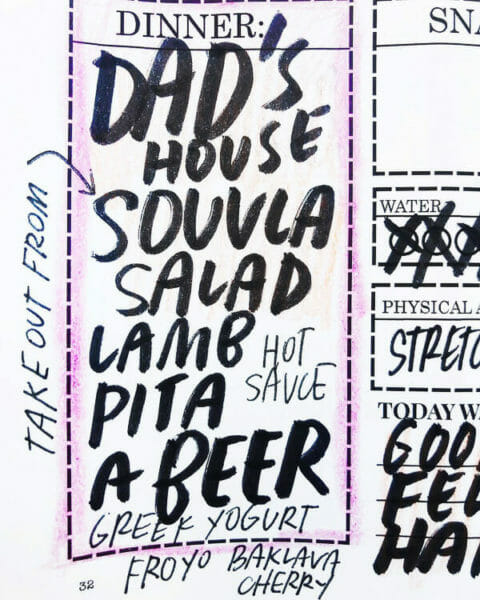 DINNER:
DAD'S
HOUSE
TAKE OUT FROM
SOUVLA
SALAD
LAMB
HOT
SAUCE
PITA
A BEER
GREEK YOGURT
FROYO BAKLAVA
CHERRY
32
SNA
WATER
PHYSICAL A
STRETC
TODAY WA
GOO
FEE
HA